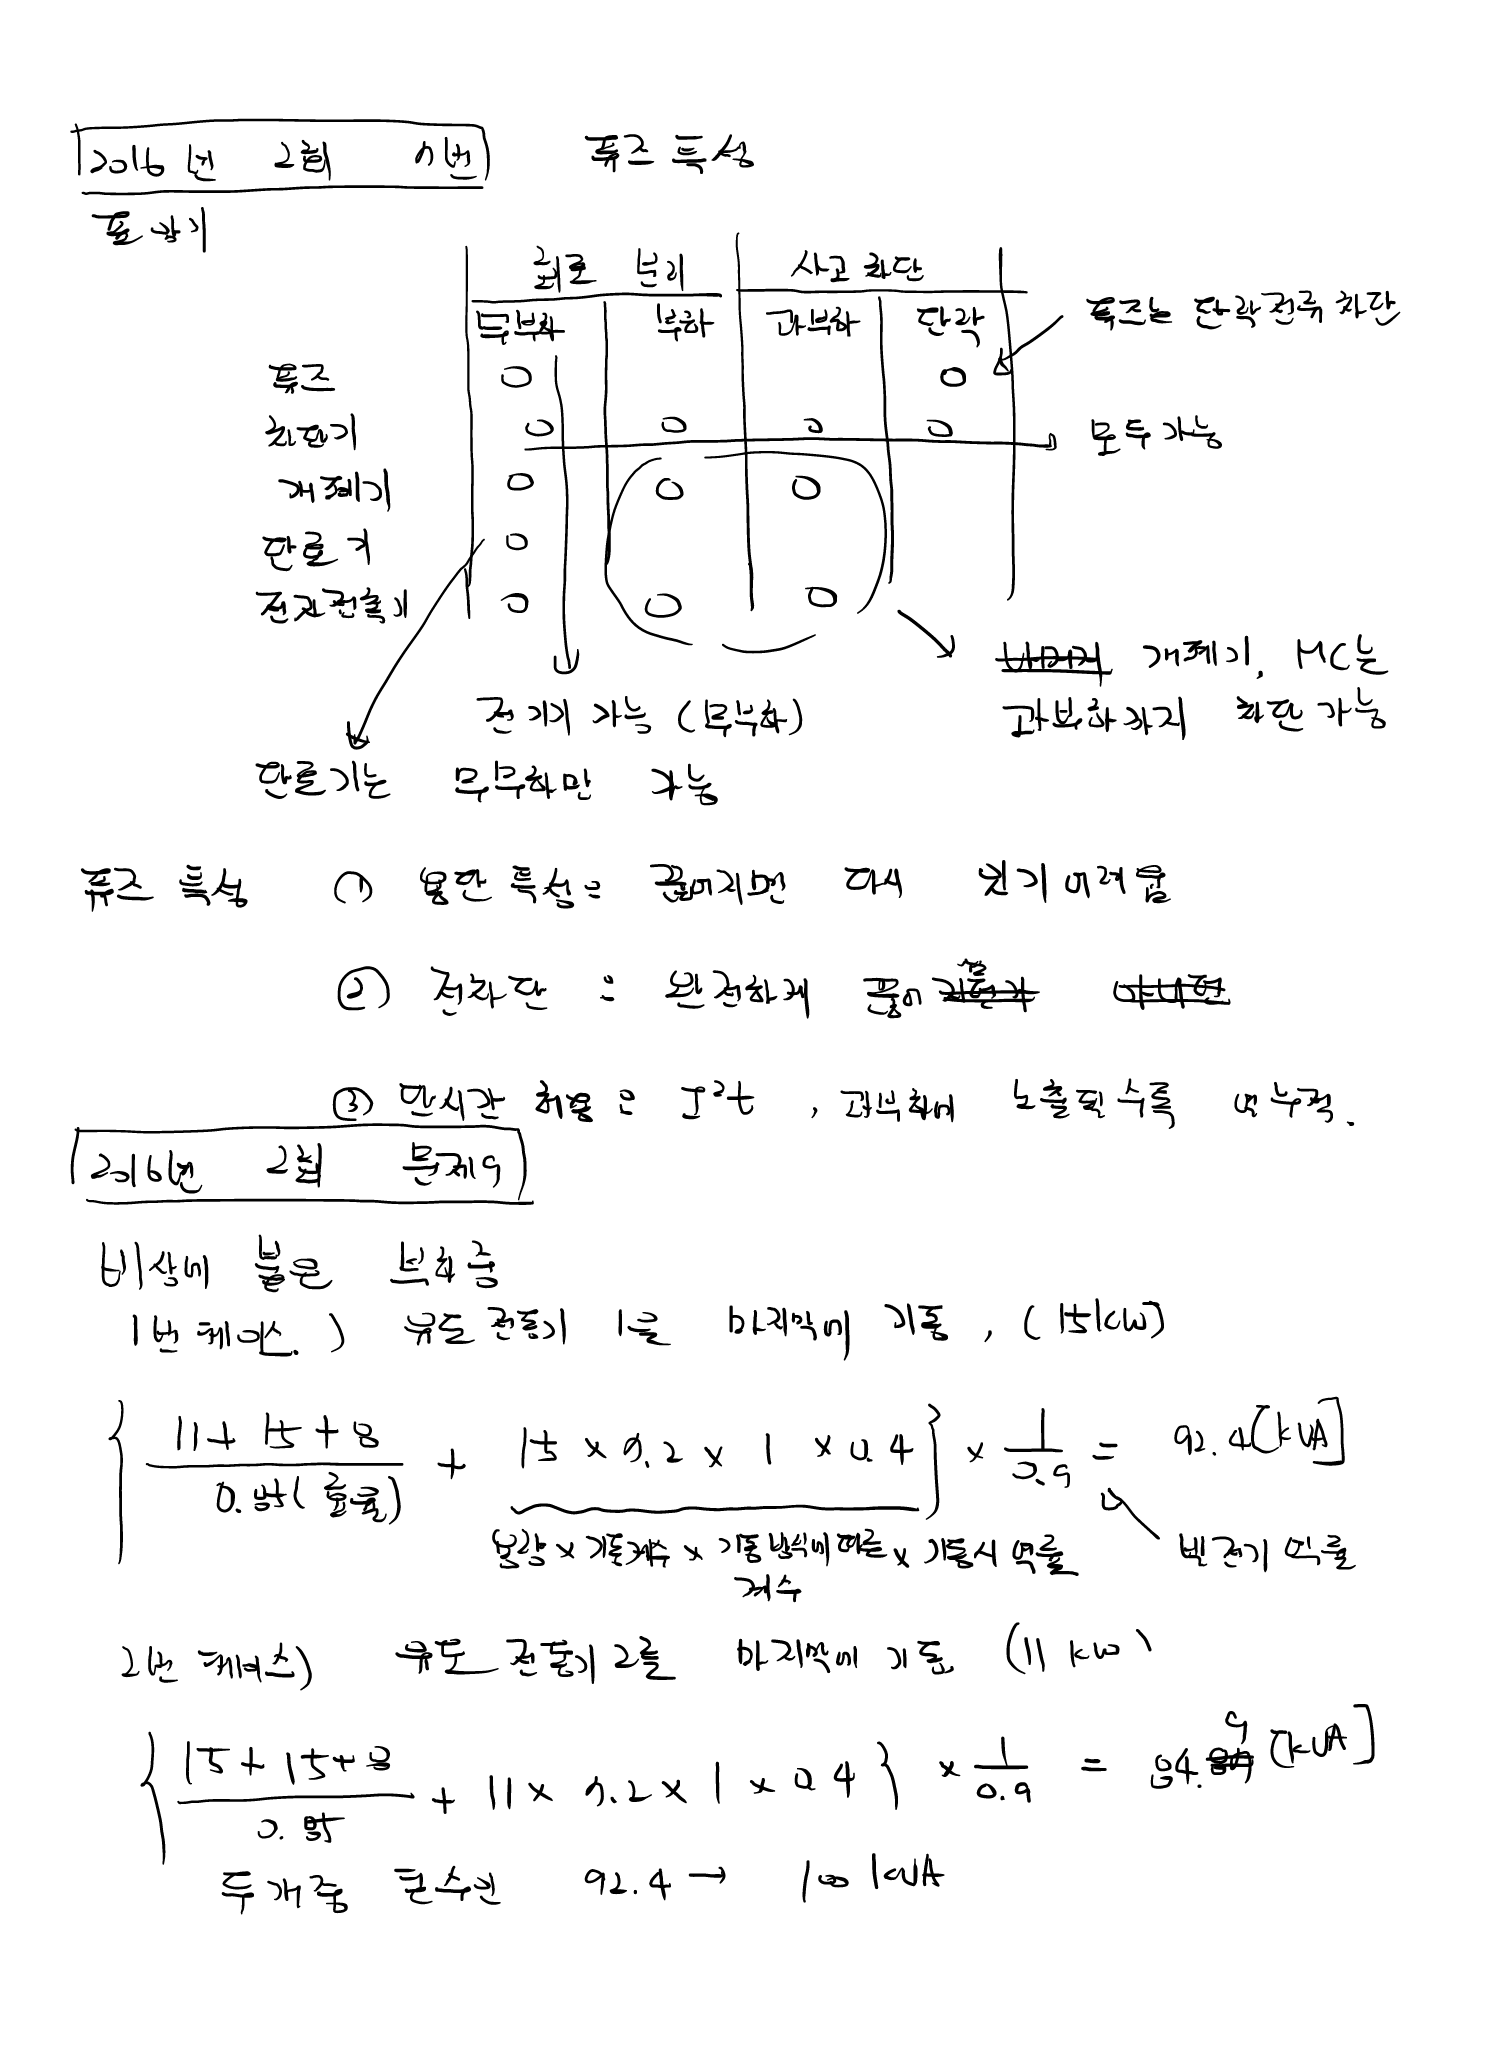 2016년 2회 7번 퓨즈 특성
표 암기
회로 분리 사고 차단
무부하 부하 과부하 단락 퓨즈는 단락전류 차단
퓨즈 O O
차단기 O O O O 모두 가능
개폐기 O O O
단로기 O
전자접촉기 O O O
개폐기, MC는
전기기 가능 (무부하) 과부하까지 차단 가능
단로기는 무부하만 가능
퓨즈 특성 ① 용단 특성 : 끊어지면 다시 잇기 어려움
② 전차단 : 완전하게 끊어짐
③ 단시간 허용 : I²t , 과부하에 노출될수록 누적.
2016년 2회 문제9
비상에 붙은 부하중
1번 케이스.) 유도 전동기 1을 마지막에 기동, (15kW)
{ (11 + 15 + 8) / 0.85(효율) + 15 × 7.2 × 1 × 0.4 } × 1/0.9 = 92.4 [kVA]
용량 × 기동계수 × 기동 방식에 따른 × 기동시 역률 발전기 역률
계수
2번 케이스) 유도 전동기 2를 마지막에 기동 (11 kW)
{ (15 + 15 + 8) / 0.85 + 11 × 7.2 × 1 × 0.4 } × 1/0.9 = 84.9 [kVA]
두 개중 큰수인 92.4 → 100 kVA